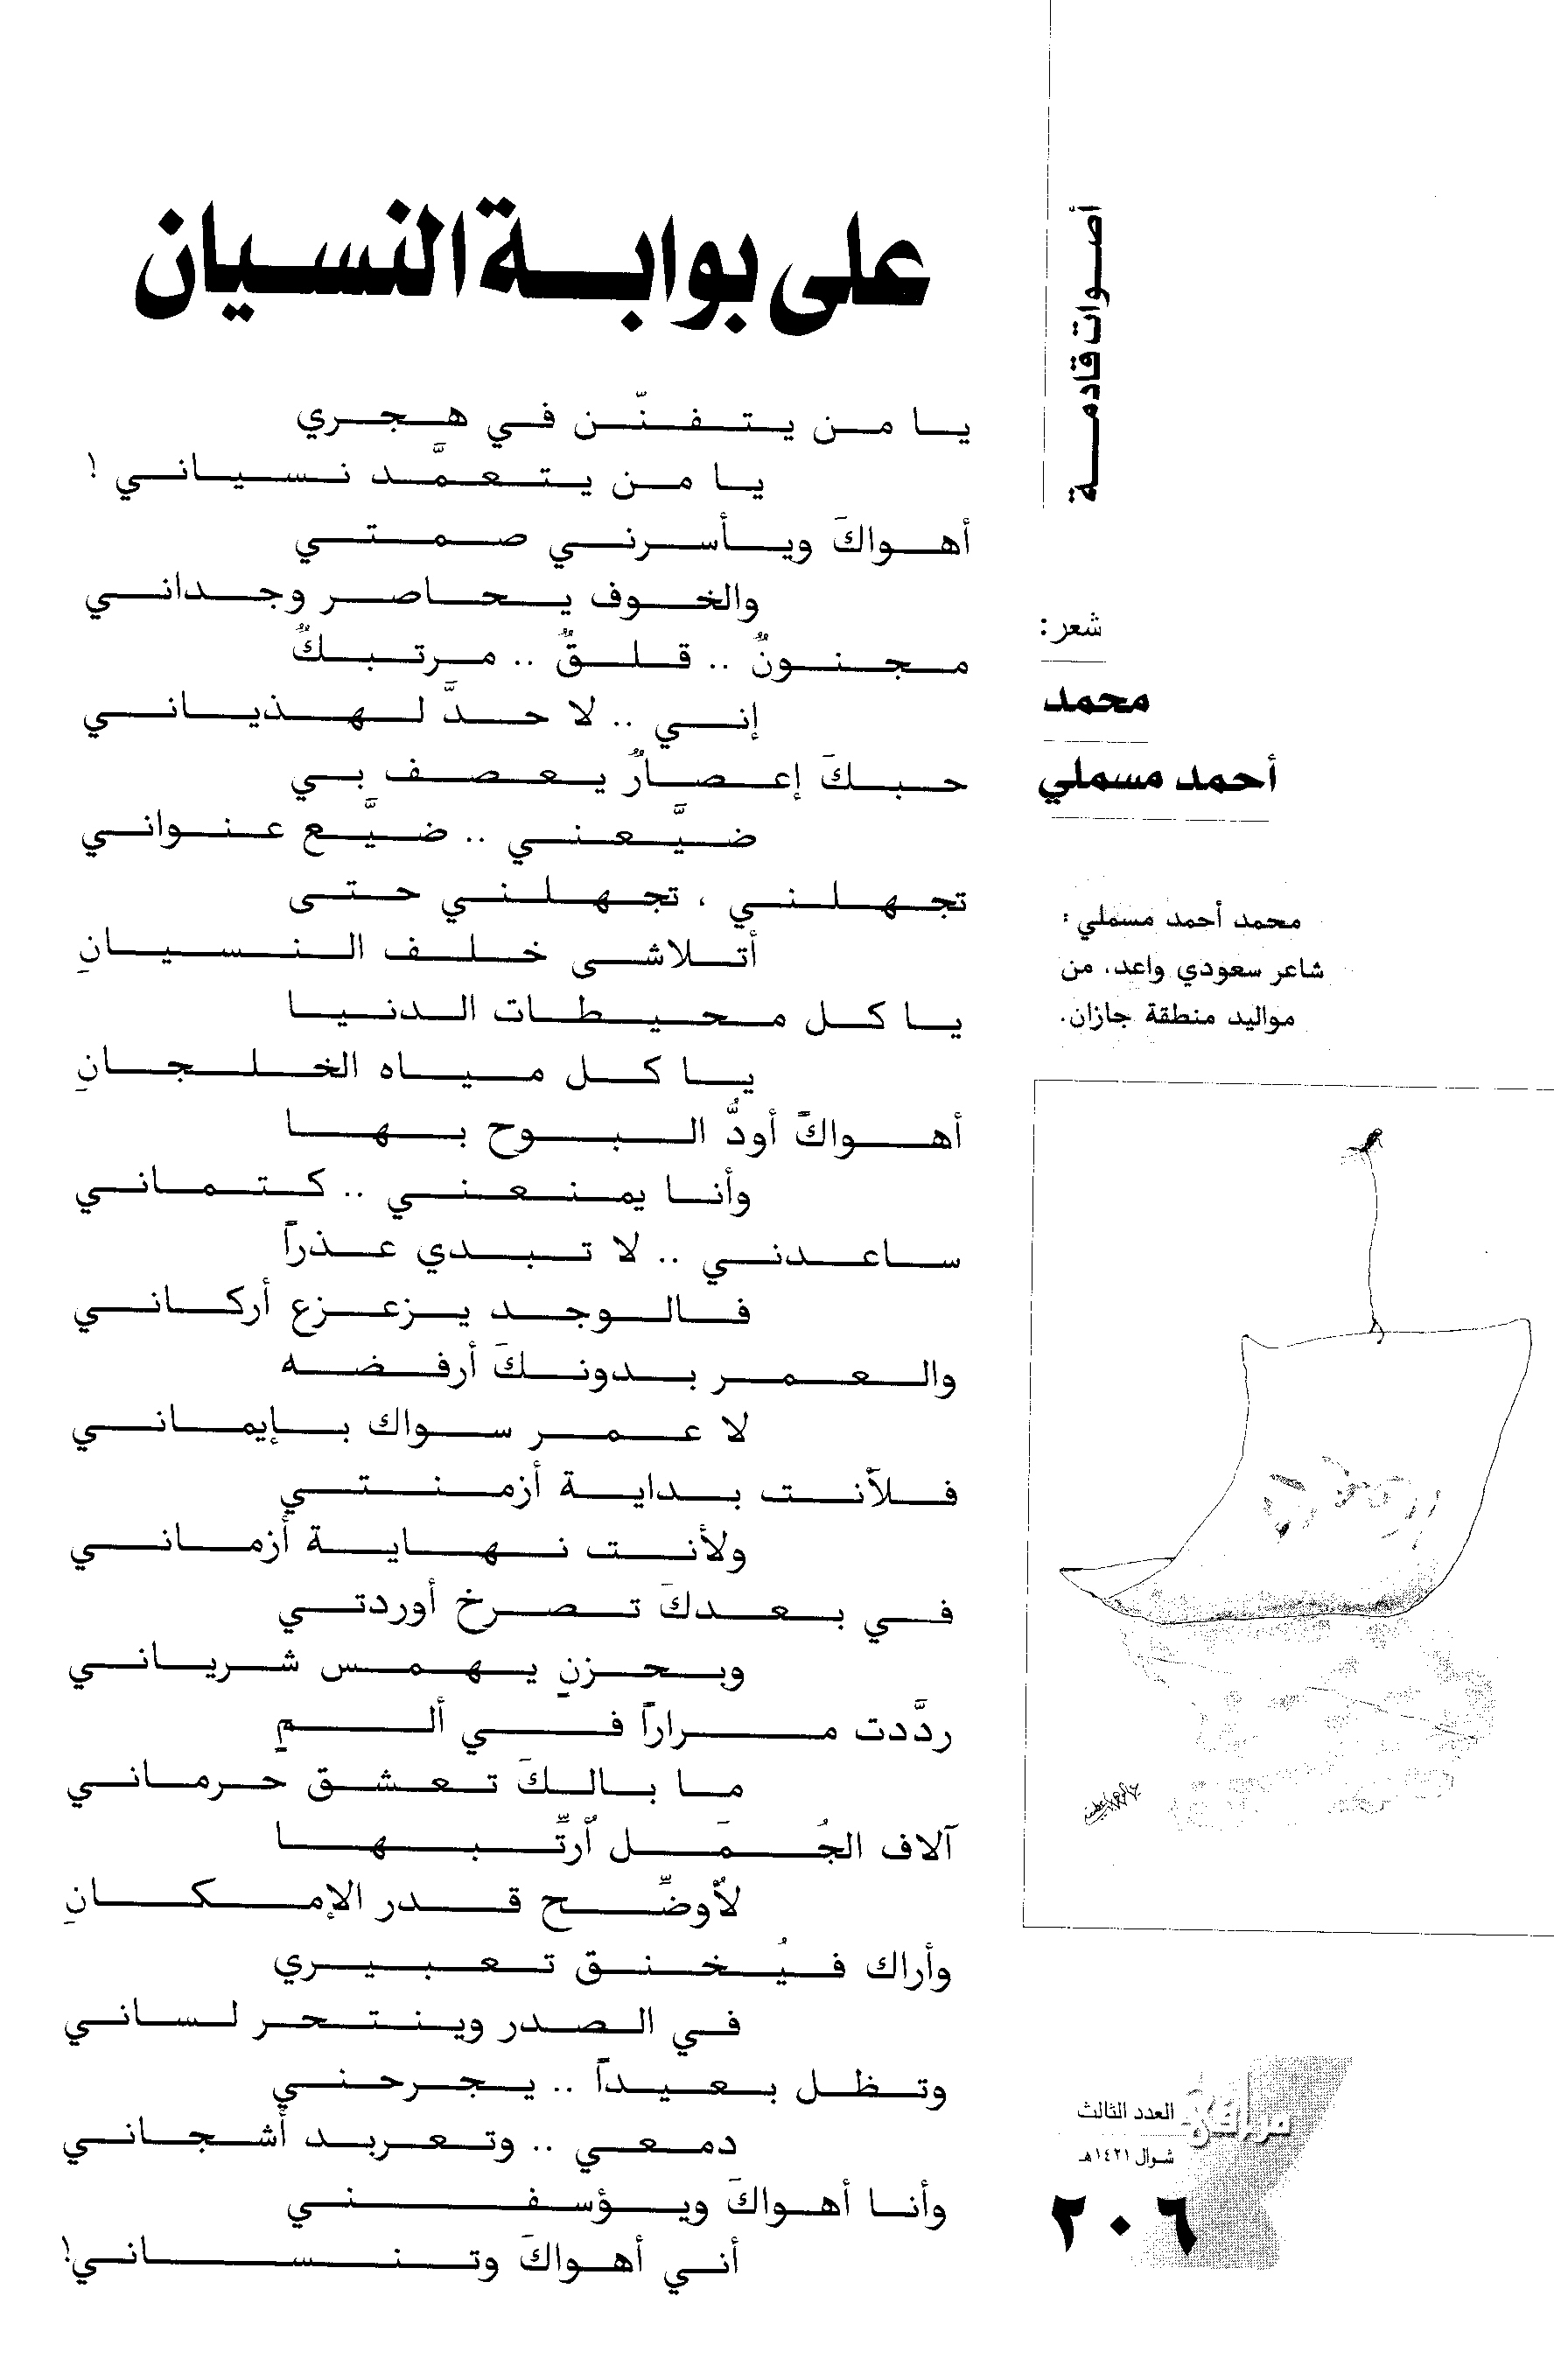 أصوات قادمة
على بوابة النسيان
شعر:
محمد
أحمد مسملي
محمد أحمد مسملي:
شاعر سعودي واعد، من
مواليد منطقة جازان.
يا من يتفنّن في هجري
يا من يتعمَّد نسياني !
أهواكَ ويأسرني صمتي
والخوف يحاصر وجداني
مجنونٌ .. قلقٌ .. مرتبكٌ
إني .. لا حدَّ لهذياني
حبكَ إعصارٌ يعصف بي
ضيَّعني .. ضيَّع عنواني
تجهلني ، تجهلني حتى
أتلاشى خلف النسيانِ
يا كل محيطات الدنيا
يا كل مياه الخلجانِ
أهواكَ أودُّ البوح بها
وأنا يمنعني .. كتماني
ساعدني .. لا تبدي عذراً
فالوجد يزعزع أركاني
والعمر بدونكَ أرفضه
لا عمر سواك بإيماني
فلأنت بداية أزمنتي
ولأنت نهاية أزماني
في بعدكَ تصرخ أوردتي
وبحزنٍ يهمس شرياني
ردَّدت مراراً في ألمٍ
ما بالكَ تعشق حرماني
آلاف الجُمَل أُرتِّبها
لأُوضِّح قدر الإمكانِ
وأراك فيُخنق تعبيري
في الصدر وينتحر لساني
وتظل بعيداً .. يجرحني
دمعي .. وتعربد أشجاني
وأنا أهواكَ ويؤسفني
أني أهواكَ وتنساني!
العدد الثالث
شوال ١٤٢١هـ
٢٠٦